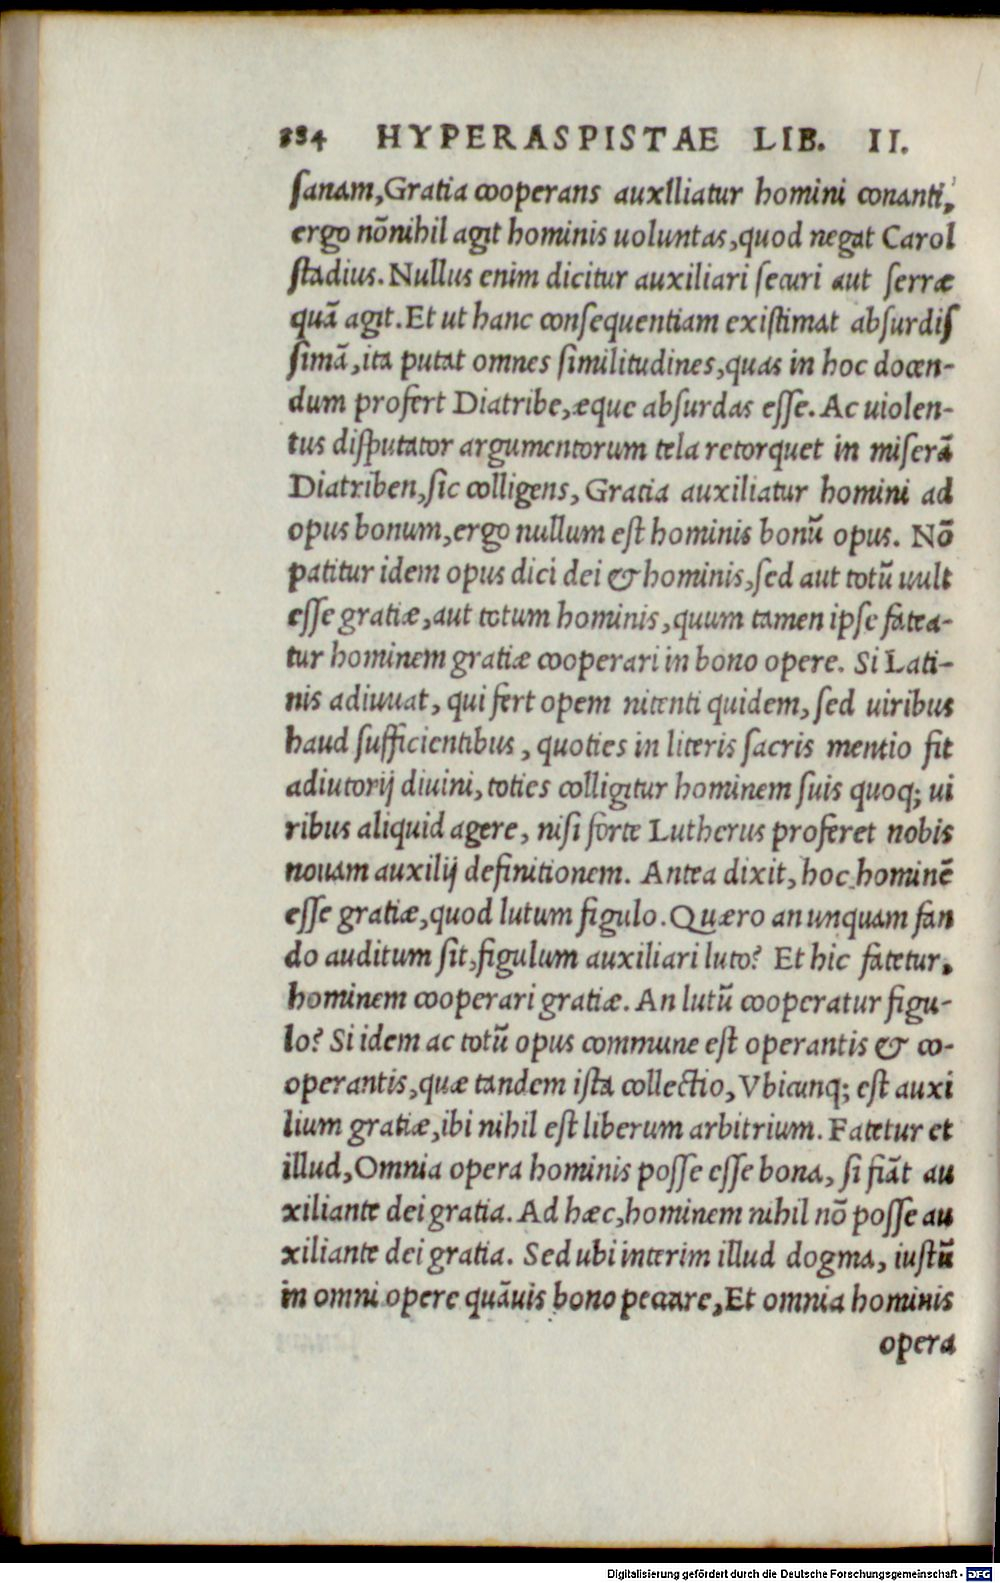 234 HYPERASPISTAE LIB. II.
sanam, Gratia cooperans auxlliatur homini conanti,
ergo nõnihil agit hominis uoluntas, quod negat Carol
stadius. Nullus enim dicitur auxiliari securi aut serræ
quã agit. Et ut hanc consequentiam existimat absurdis
simã, ita putat omnes similitudines, quas in hoc docen-
dum profert Diatribe, æque absurdas esse. Ac uiolen-
tus disputator argumentorum tela retorquet in miserã
Diatriben, sic colligens, Gratia auxiliatur homini ad
opus bonum, ergo nullum est hominis bonũ opus. Nõ
patitur idem opus dici dei & hominis, sed aut totũ uult
esse gratiæ, aut totum hominis, quum tamen ipse fatea-
tur hominem gratiæ cooperari in bono opere. Si Lati-
nis adiuuat, qui fert opem nitenti quidem, sed uiribus
haud sufficientibus, quoties in literis sacris mentio fit
adiutorij diuini, toties colligitur hominem suis quoq; ui
ribus aliquid agere, nisi forte Lutherus proferet nobis
nouam auxilij definitionem. Antea dixit, hoc hominẽ
esse gratiæ, quod lutum figulo. Quæro an unquam fan
do auditum sit, figulum auxiliari luto? Et hic fatetur,
hominem cooperari gratiæ. An lutũ cooperatur figu-
lo? Si idem ac totũ opus commune est operantis & co-
operantis, quæ tandem ista collectio, Vbicunq; est auxi
lium gratiæ, ibi nihil est liberum arbitrium. Fatetur et
illud, Omnia opera hominis posse esse bona, si fiãt au
xiliante dei gratia. Ad hæc, hominem nihil nõ posse au
xiliante dei gratia. Sed ubi interim illud dogma, iustũ
in omni opere quãuis bono peccare, Et omnia hominis
opera
Digitalisierung gefördert durch die Deutsche Forschungsgemeinschaft - DFG